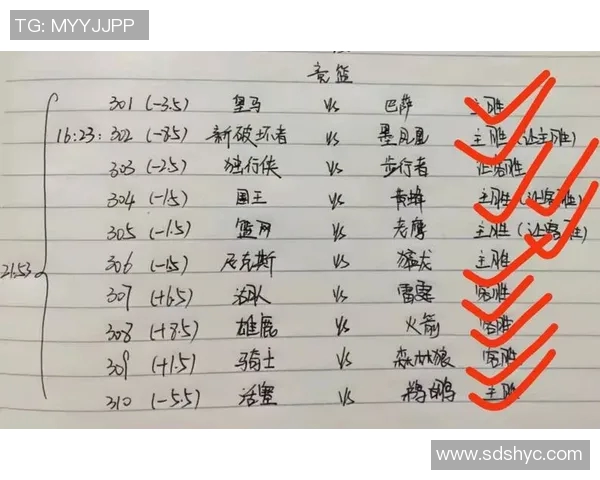 TG: MYYJJPP
竞篮
301 (-3.5) 皇马 vs 巴萨 主胜
16:23: 302 (-8.5) 新破坏者 vs 墨凤凰 主胜 (让主胜)
303 (-2.5) 独行侠 vs 步行者 让客胜
304 (-1.5) 国王 vs 黄蜂 主胜 (让客胜)
305 (-1.5) 篮网 vs 老鹰 主胜 (让客胜)
21:53 306 (-1.5) 尼克斯 vs 猛龙 主胜
307 (+6.5) vs 雷霆 客胜
308 (+8.5) 雄鹿 vs 火箭 客胜
309 (+1.5) 马奇士 vs 森林狼 客胜
310 (-5.5) 活塞 vs 鹈鹕 主胜
www.sdshyc.com